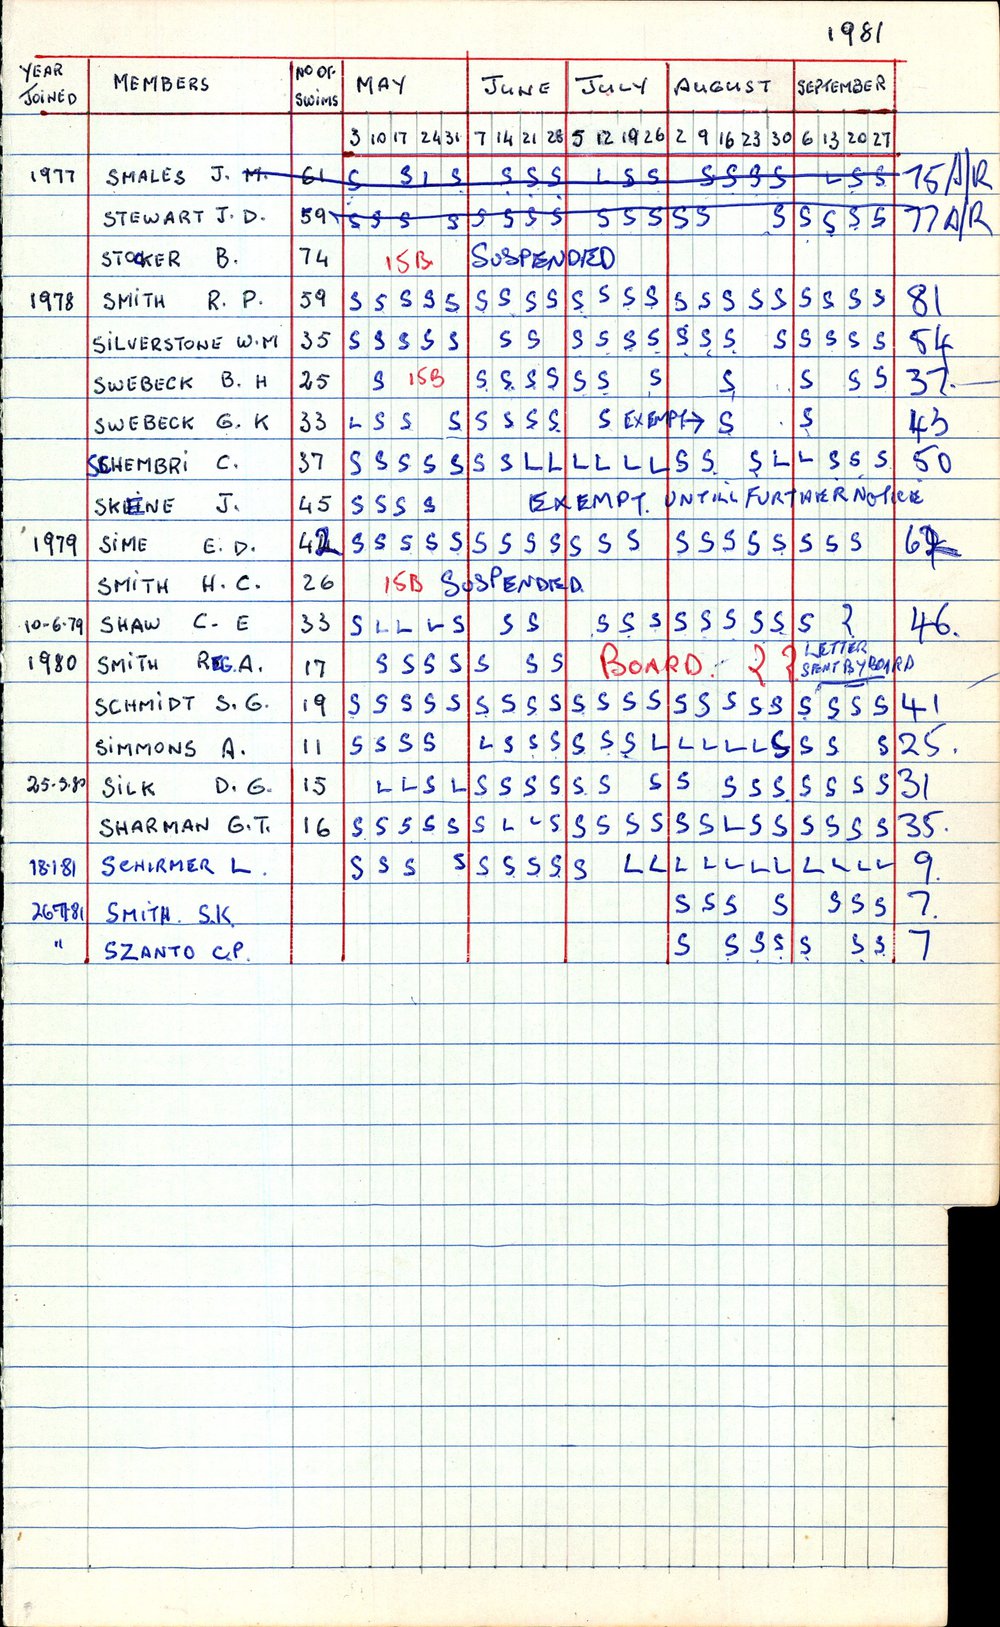 1981
YEAR JOINED MEMBERS NO OF SWIMS MAY JUNE JULY AUGUST SEPTEMBER
3 10 17 24 31 7 14 21 28 5 12 19 26 2 9 16 23 30 6 13 20 27
1977 SMALES J. M. 61 S S L S S S S L S S S S S S L S S 75 A/R
STEWART J. D. 59 S S S S S S S S S S S S S S S S S S S 77 A/R
STOCKER B. 74 15B SUSPENDED
1978 SMITH R. P. 59 S S S S S S S S S S S S S S S S S S S S S S 81
SILVERSTONE W.M 35 S S S S S S S S S S S S S S S S S S S S 54
SWEBECK B. H 25 S 15B S S S S S S S S S S S 37
SWEBECK G. K 33 L S S S S S S S S EXEMPT → S S 43
SCHEMBRI C. 37 S S S S S S S L L L L L L S S S L L S S S 50
SKENE J. 45 S S S S EXEMPT. UNTILL FURTHER NOTICE
1979 SIME E. D. 42 S S S S S S S S S S S S S S S S S S S S 62
SMITH H. C. 26 15B SUSPENDED
10-6-79 SHAW C. E 33 S L L L S S S S S S S S S S S S ? 46.
1980 SMITH REG.A. 17 S S S S S S S BOARD. ? ? LETTER SENT BY BOARD
SCHMIDT S. G. 19 S S S S S S S S S S S S S S S S S S S S S S 41
SIMMONS A. 11 S S S S L S S S S S S L L L L L S S S S 25.
25-3-80 SILK D. G. 15 L L S L S S S S S S S S S S S S S S S 31
SHARMAN G.T. 16 S S S S S S L L S S S S S S S L S S S S S S 35.
18.1.81 SCHIRMER L. S S S S S S S S S L L L L L L L L L L L 9.
26.7.81 SMITH. S.K. S S S S S S S 7.
" SZANTO C.P. S S S S S S S 7